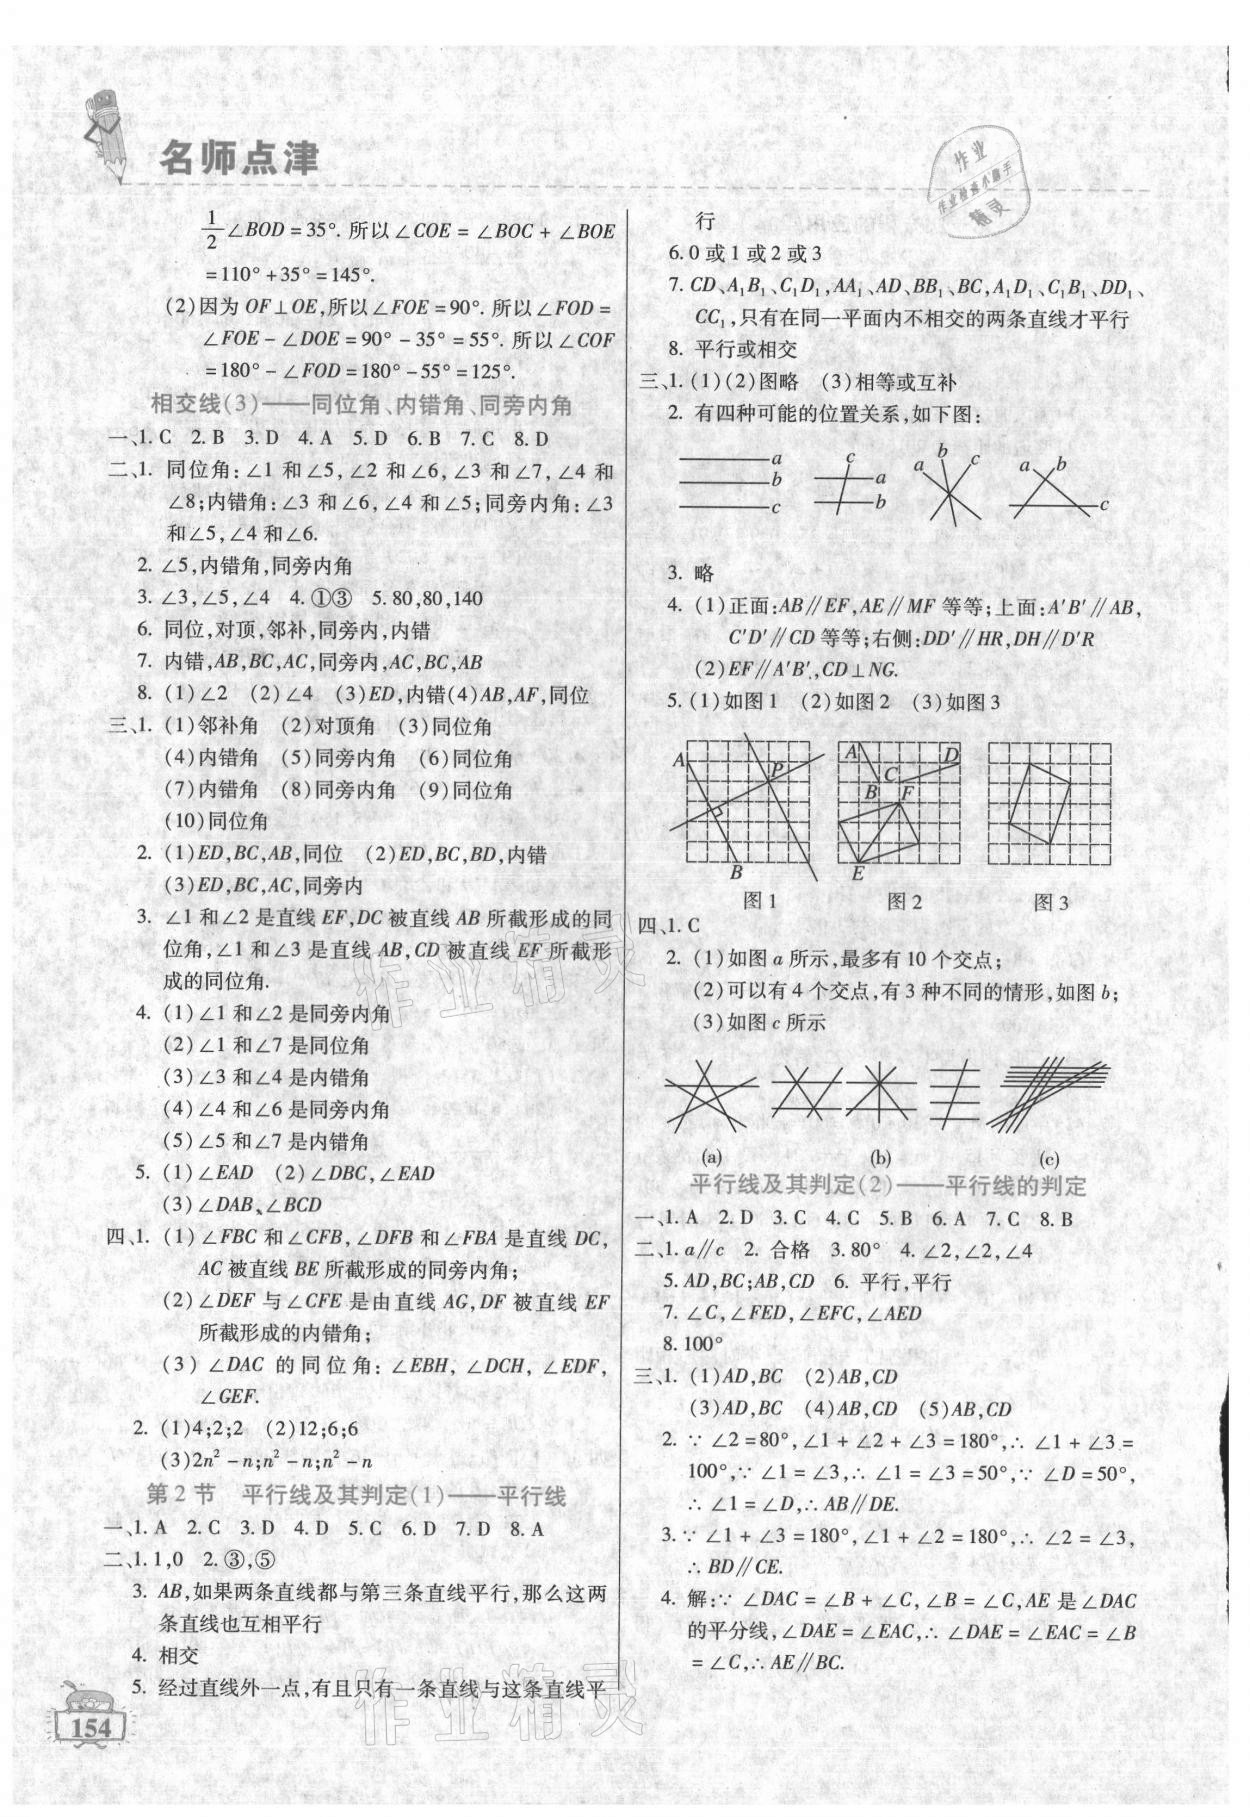 名师点津
1/2∠BOD=35°.所以∠COE=∠BOC+∠BOE
=110°+35°=145°.
(2)因为OF⊥OE,所以∠FOE=90°.所以∠FOD=
∠FOE-∠DOE=90°-35°=55°.所以∠COF
=180°-∠FOD=180°-55°=125°.
相交线(3)——同位角、内错角、同旁内角
一、1. C 2. B 3. D 4. A 5. D 6. B 7. C 8. D
二、1. 同位角:∠1和∠5,∠2和∠6,∠3和∠7,∠4和
∠8;内错角:∠3和∠6,∠4和∠5;同旁内角:∠3
和∠5,∠4和∠6.
2. ∠5,内错角,同旁内角
3. ∠3,∠5,∠4 4. ①③ 5. 80,80,140
6. 同位,对顶,邻补,同旁内,内错
7. 内错,AB,BC,AC,同旁内,AC,BC,AB
8. (1)∠2 (2)∠4 (3)ED,内错(4)AB,AF,同位
三、1. (1)邻补角 (2)对顶角 (3)同位角
(4)内错角 (5)同旁内角 (6)同位角
(7)内错角 (8)同旁内角 (9)同位角
(10)同位角
2. (1)ED,BC,AB,同位 (2)ED,BC,BD,内错
(3)ED,BC,AC,同旁内
3. ∠1和∠2是直线EF,DC被直线AB所截形成的同
位角,∠1和∠3是直线AB,CD被直线EF所截形
成的同位角.
4. (1)∠1和∠2是同旁内角
(2)∠1和∠7是同位角
(3)∠3和∠4是内错角
(4)∠4和∠6是同旁内角
(5)∠5和∠7是内错角
5. (1)∠EAD (2)∠DBC,∠EAD
(3)∠DAB、∠BCD
四、1. (1)∠FBC和∠CFB,∠DFB和∠FBA是直线DC,
AC被直线BE所截形成的同旁内角;
(2)∠DEF与∠CFE是由直线AG,DF被直线EF
所截形成的内错角;
(3)∠DAC的同位角:∠EBH,∠DCH,∠EDF,
∠GEF.
2. (1)4;2;2 (2)12;6;6
(3)2n²-n;n²-n;n²-n
第2节 平行线及其判定(1)——平行线
一、1. A 2. C 3. D 4. D 5. C 6. D 7. D 8. A
二、1. 1,0 2. ③,⑤
3. AB,如果两条直线都与第三条直线平行,那么这两
条直线也互相平行
4. 相交
5. 经过直线外一点,有且只有一条直线与这条直线平
154
行
6. 0或1或2或3
7. CD、A₁B₁、C₁D₁,AA₁、AD、BB₁、BC,A₁D₁、C₁B₁、DD₁、
CC₁,只有在同一平面内不相交的两条直线才平行
8. 平行或相交
三、1. (1)(2)图略 (3)相等或互补
2. 有四种可能的位置关系,如下图:
a b c
c a b
a b c
a b c
3. 略
4. (1)正面:AB∥EF,AE∥MF等等;上面:A′B′∥AB,
C′D′∥CD等等;右侧:DD′∥HR,DH∥D′R
(2)EF∥A′B′,CD⊥NG.
5. (1)如图1 (2)如图2 (3)如图3
A P B
A B C D F E
图1 图2 图3
四、1. C
2. (1)如图a所示,最多有10个交点;
(2)可以有4个交点,有3种不同的情形,如图b;
(3)如图c所示
(a) (b) (c)
平行线及其判定(2)——平行线的判定
一、1. A 2. D 3. C 4. C 5. B 6. A 7. C 8. B
二、1. a∥c 2. 合格 3. 80° 4. ∠2,∠2,∠4
5. AD,BC;AB,CD 6. 平行,平行
7. ∠C,∠FED,∠EFC,∠AED
8. 100°
三、1. (1)AD,BC (2)AB,CD
(3)AD,BC (4)AB,CD (5)AB,CD
2. ∵∠2=80°,∠1+∠2+∠3=180°,∴∠1+∠3=
100°,∵∠1=∠3,∴∠1=∠3=50°,∵∠D=50°,
∴∠1=∠D,∴AB∥DE.
3. ∵∠1+∠3=180°,∠1+∠2=180°,∴∠2=∠3,
∴BD∥CE.
4. 解:∵∠DAC=∠B+∠C,∠B=∠C,AE是∠DAC
的平分线,∠DAE=∠EAC,∴∠DAE=∠EAC=∠B
=∠C,∴AE∥BC.
作业精灵
作业精灵
作业
作业检查小助手
精灵